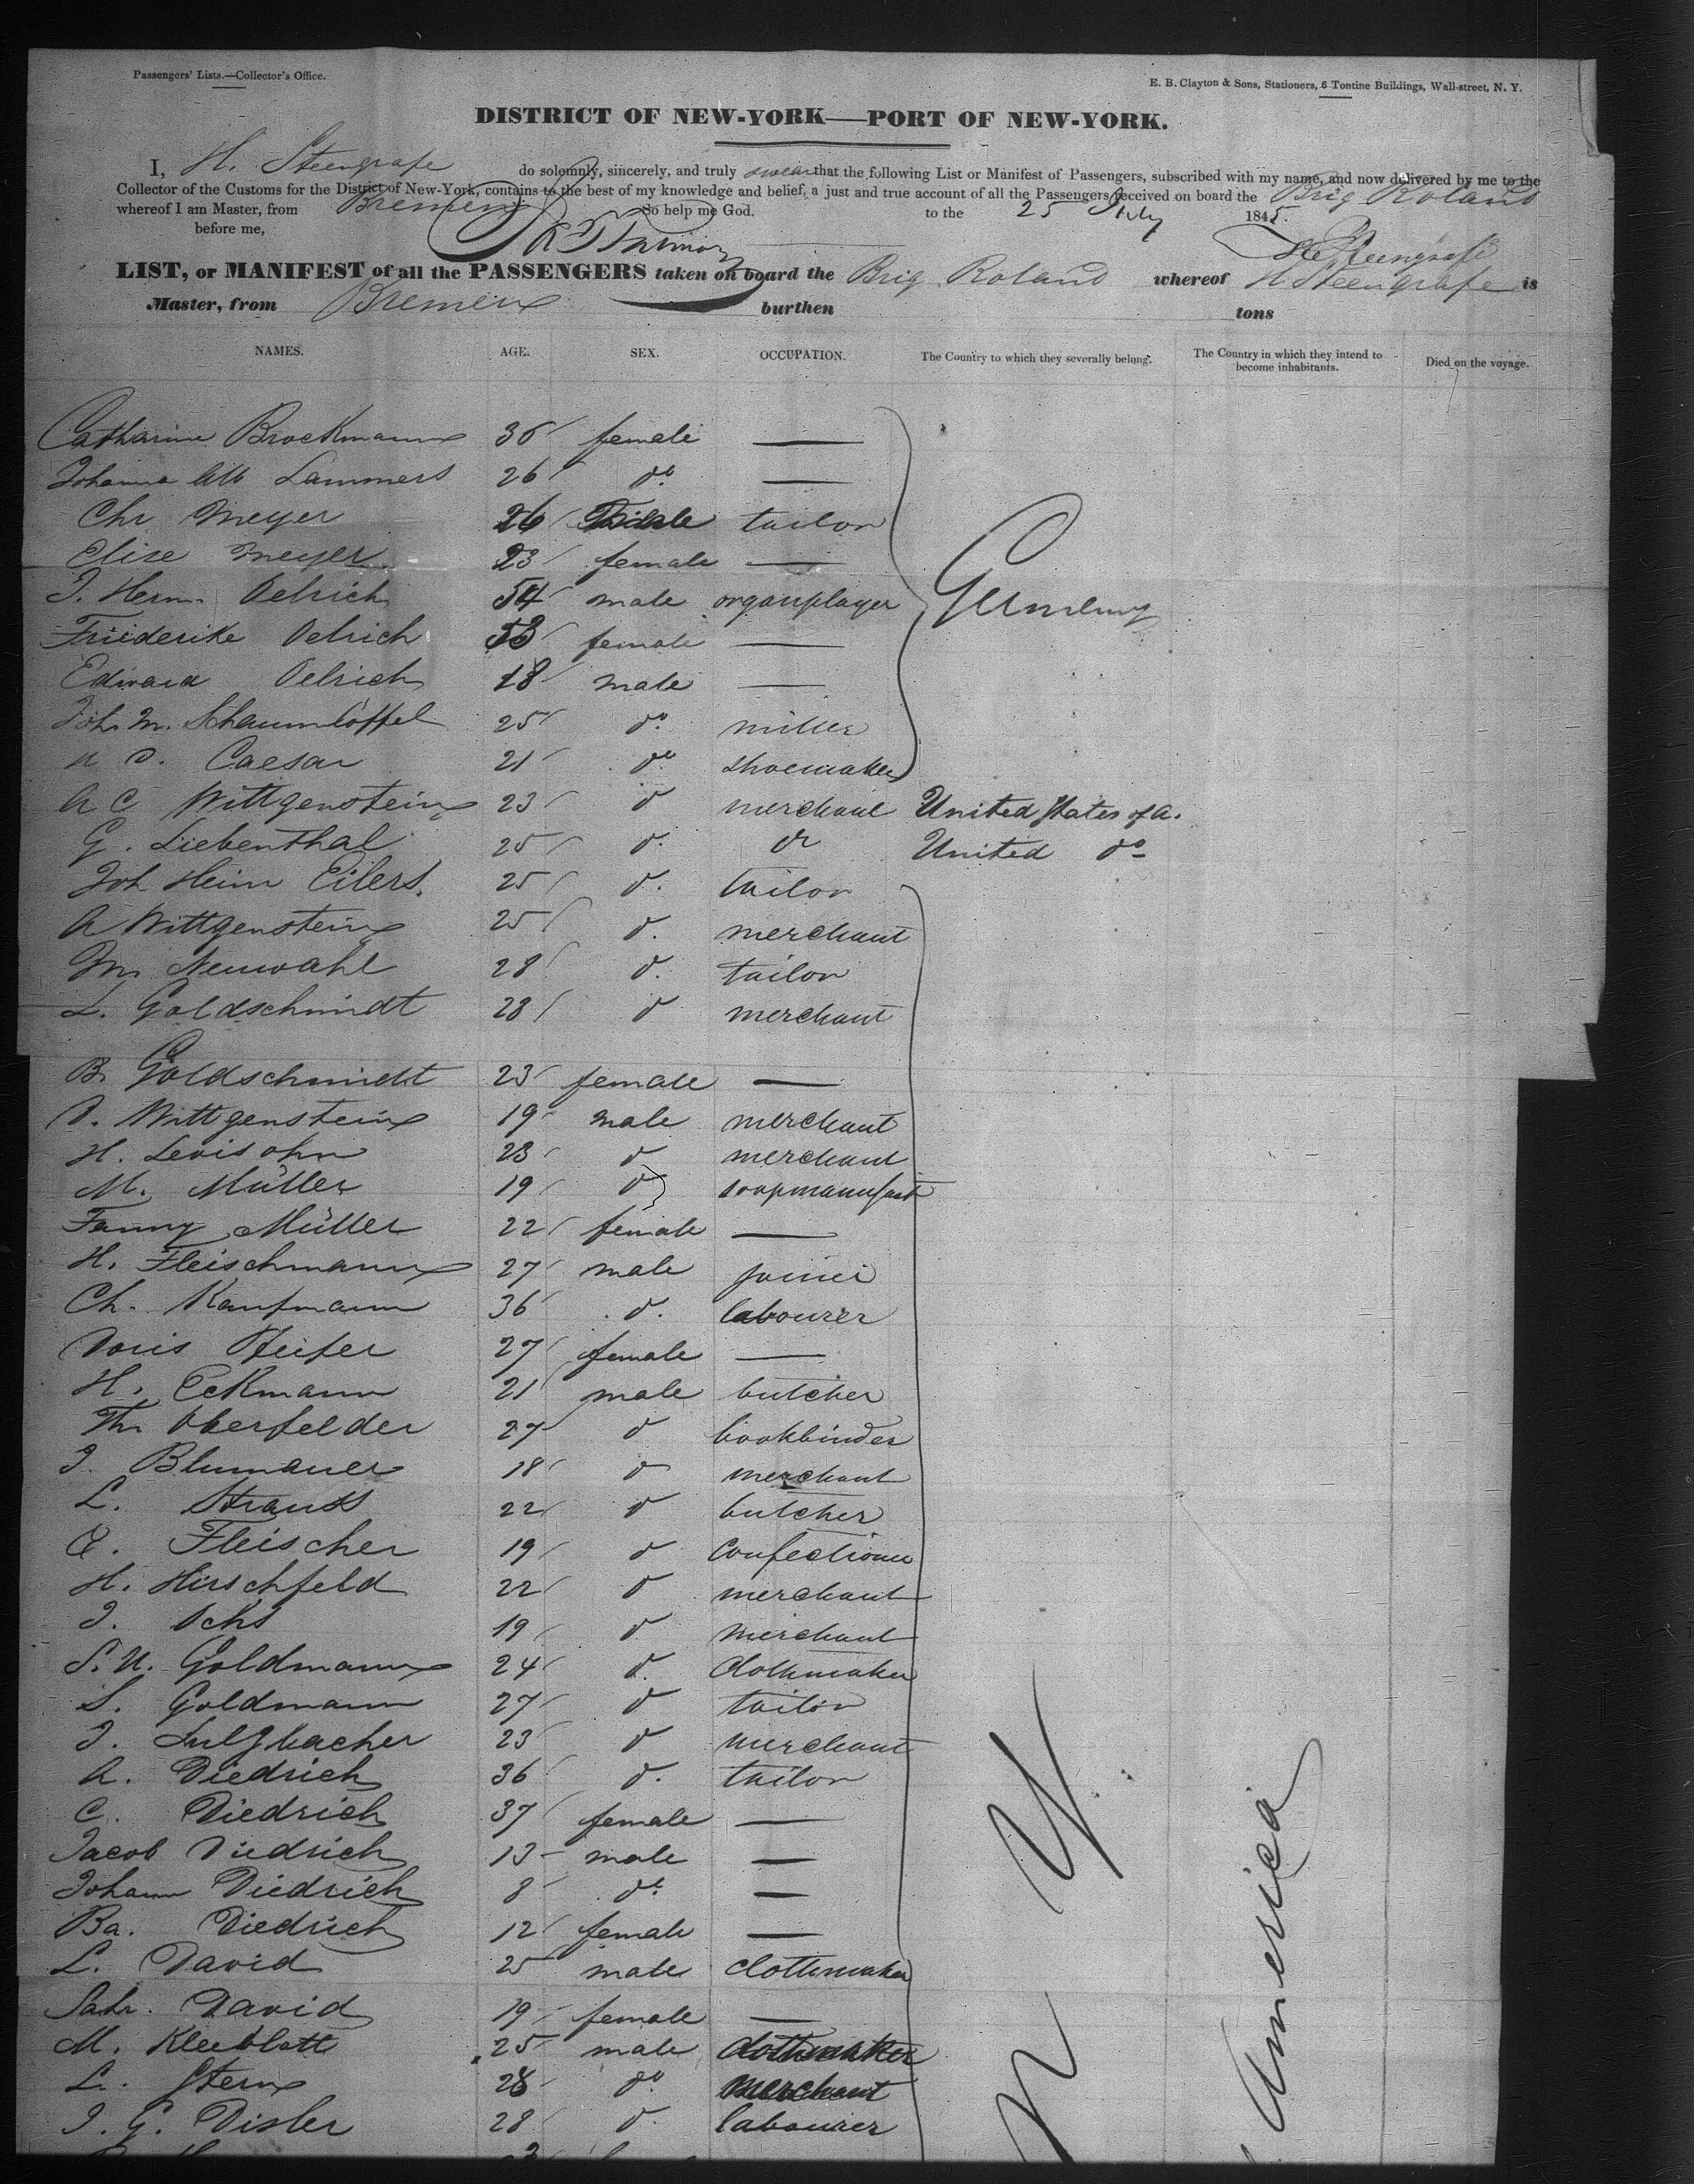 Passengers' Lists.—Collector's Office.
E. B. Clayton & Sons, Stationers, 6 Tontine Buildings, Wall-street, N. Y.
DISTRICT OF NEW-YORK—PORT OF NEW-YORK.
I, H. Steengrafe do solemnly, sincerely, and truly swear that the following List or Manifest of Passengers, subscribed with my name, and now delivered by me to the
Collector of the Customs for the District of New-York, contains to the best of my knowledge and belief, a just and true account of all the Passengers received on board the Brig Roland
whereof I am Master, from Bremen So help me God. to the 25 July 1845.
before me, H Steengrafe
LIST, or MANIFEST of all the PASSENGERS taken on board the Brig Roland whereof H Steengrafe is
Master, from Bremen burthen tons
NAMES. AGE. SEX. OCCUPATION. The Country to which they severally belong. The Country in which they intend to become inhabitants. Died on the voyage.
Catharine Brockmann 36 female —
Johanna Lammers 26 do. —
Chr Meyer 26 tailor
Elise Meyer 23 female —
J. Herm. Oelrich 54 male organplayer Germany
Friederike Oelrich 53 female —
Edward Oelrich 18 male —
Joh. M. Schaumlöffel 25 do. miller
D. Caesar 21 do shoemaker
A C Wittgenstein 23 d merchant United States of A.
G. Liebenthal 25 d. do United do
Joh Heinr Eilers. 25 d. tailor
A Wittgenstein 25 d. merchant
M. Neuwahl 28 d. tailor
L. Goldschmidt 28 d merchant
B. Goldschmidt 23 female —
D. Wittgenstein 19 male merchant
H. Levisohn 23 d merchant
M. Müller 19 d soapmanufact
Fanny Müller 22 female —
H. Fleischmann 27 male joiner
Ch. Kaufmann 36 d. labourer
Doris Pfeifer 27 female —
H. Eckmann 21 male butcher
Th. Oberfelder 27 d bookbinder
J. Blumauer 18 d merchant
L. Strauss 22 d butcher
E. Fleischer 19 d Confectioner
H. Hirschfeld 22 d merchant
J. Ochs 19 d merchant
S. N. Goldmann 24 d. Clothmaker
S. Goldmann 27 d tailor
J. Sulzbacher 23 d merchant
A. Diedrich 36 d. tailor
C. Diedrich 37 female —
Jacob Diedrich 13 male —
Johann Diedrich 8 do. —
Ba. Diedrich 12 female —
L. David 25 male Clothmaker
David 19 female —
M. Kleeblatt 25 male Clothmaker
L. Stern 28 do merchant
J. G. Disler 28 d. labourer
America